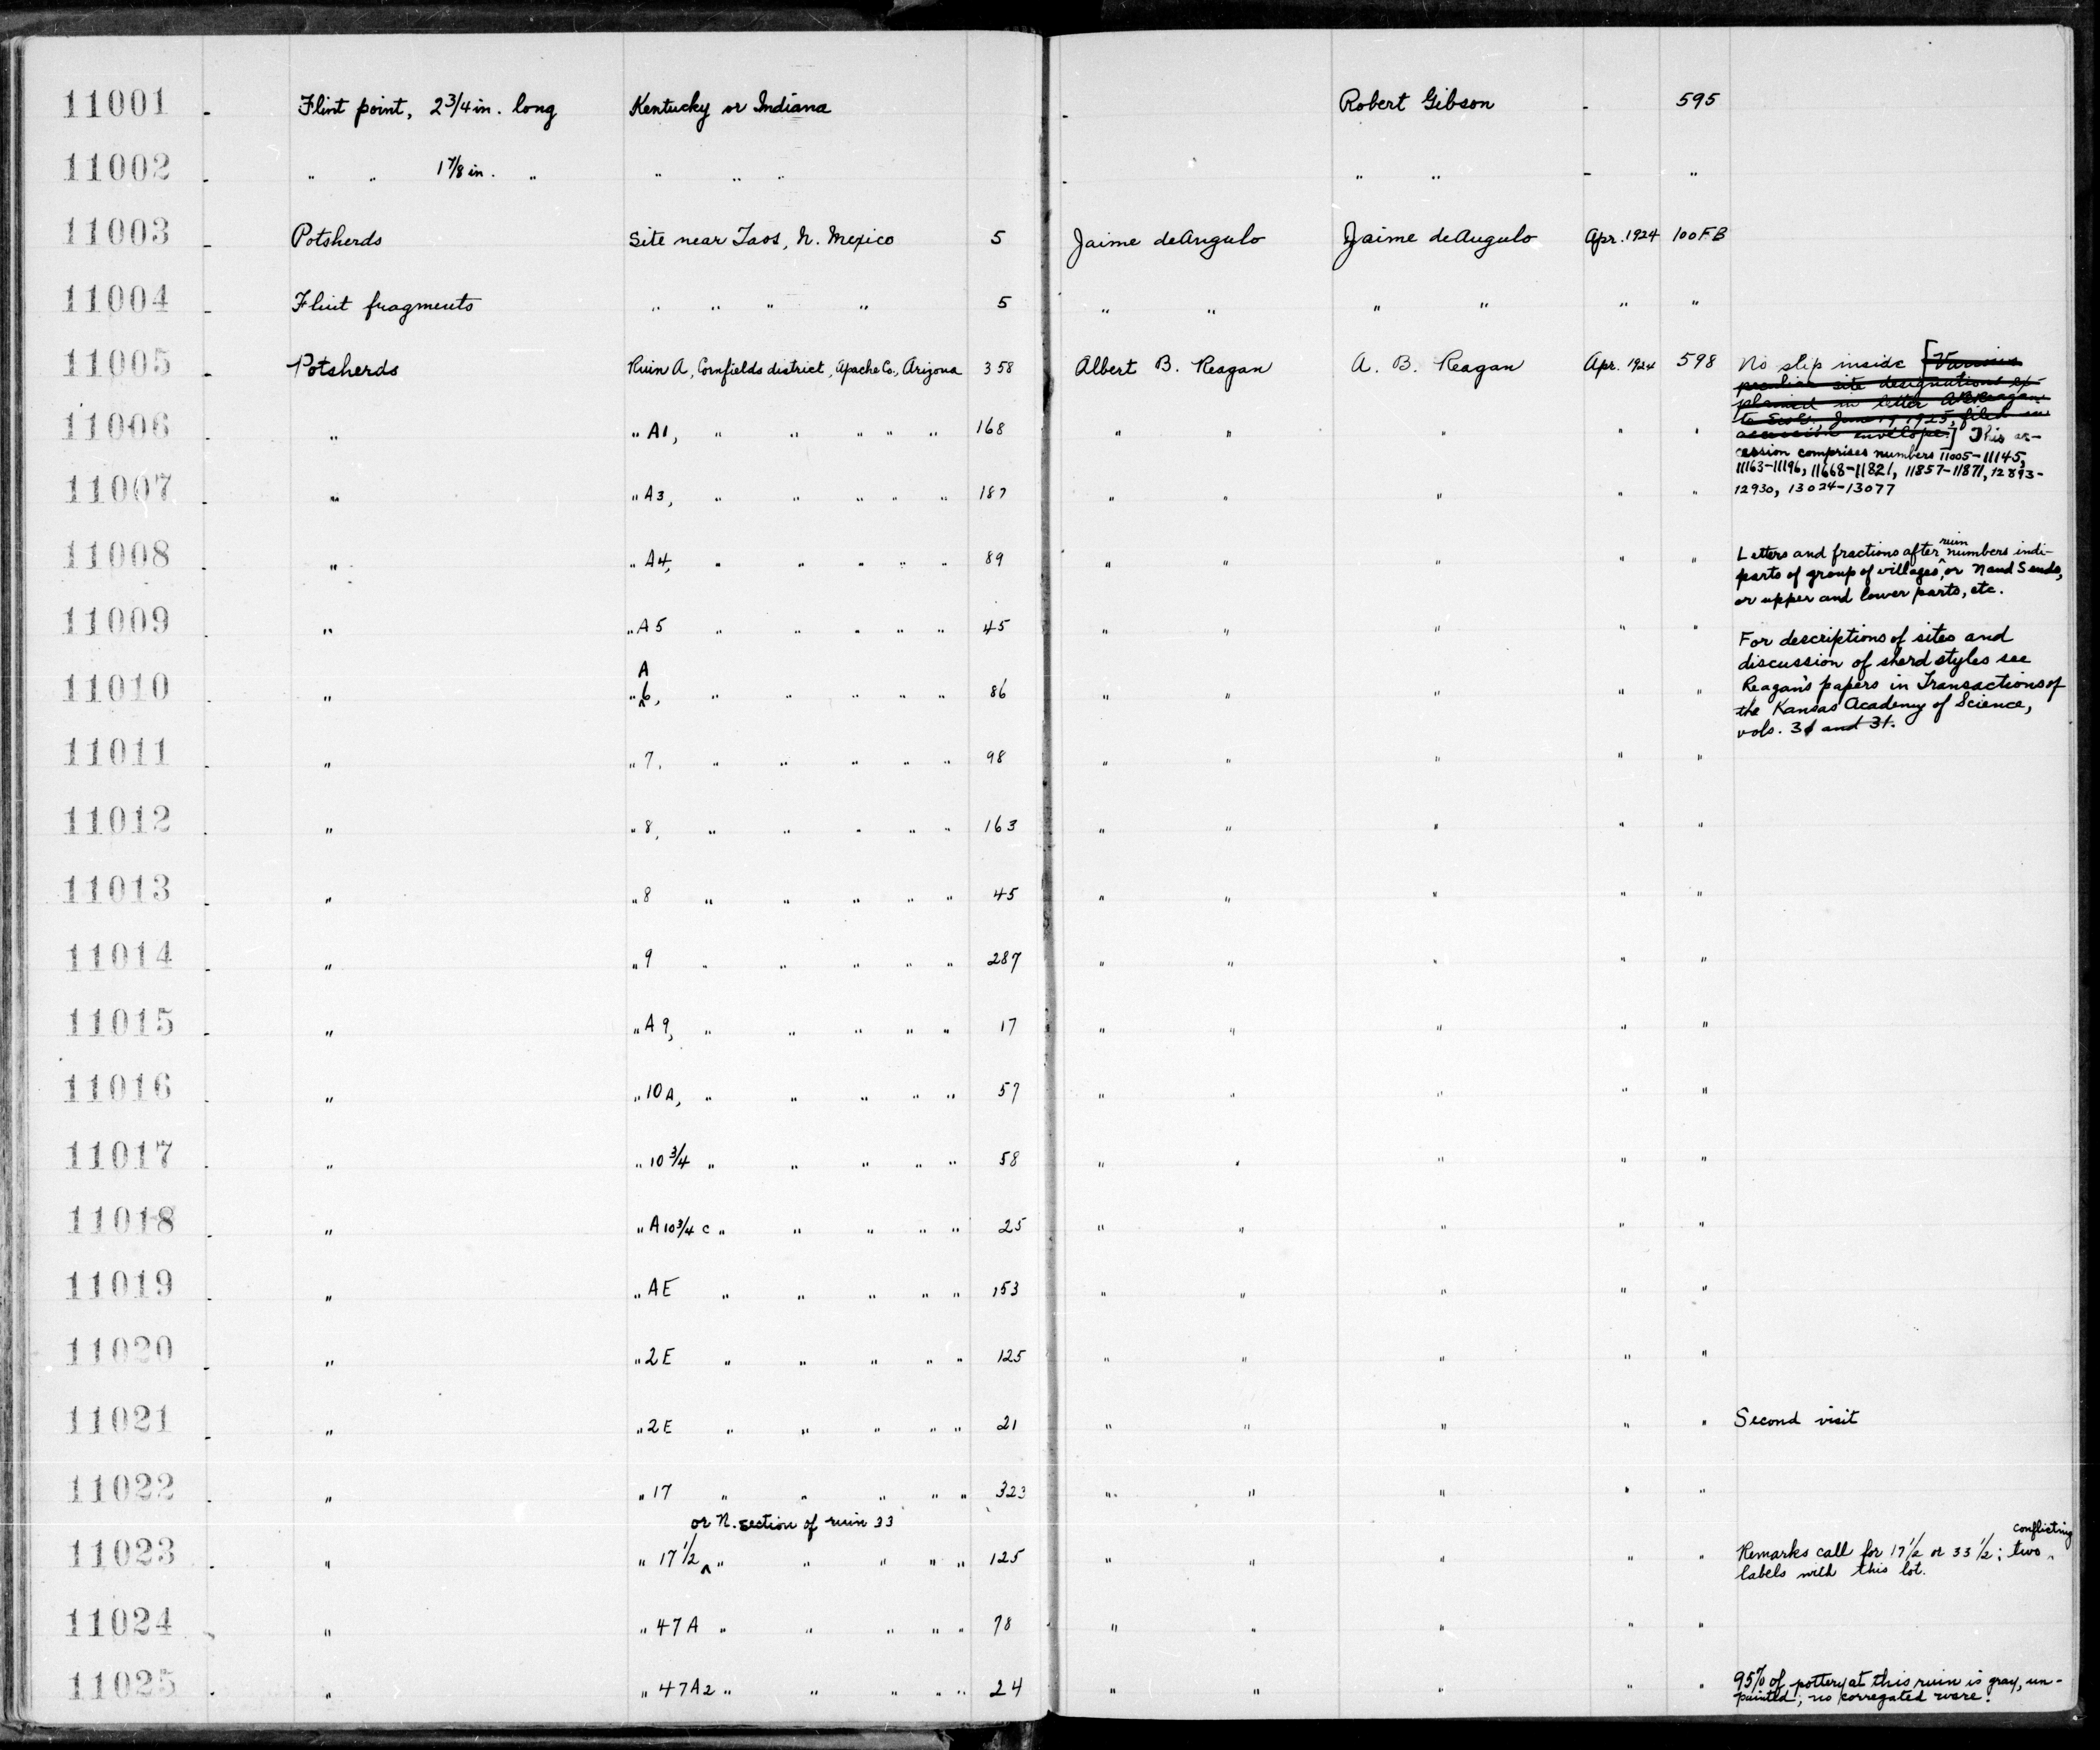 11001 - Flint point, 2 3/4 in. long Kentucky or Indiana - Robert Gibson - 595
11002 - " " 1 7/8 in. " " " " - " " - "
11003 - Potsherds Site near Taos, N. Mexico 5 Jaime deAngulo Jaime deAngulo Apr. 1924 100FB
11004 - Flint fragments " " " " 5 " " " " " "
11005 - Potsherds Ruin A, Cornfields district, Apache Co., Arizona 358 Albert B. Reagan A. B. Reagan Apr. 1924 598 No slip inside [Various
peculiar site designations ex-
plained in letter A.B. Reagan
11006 - " " A1, " " " " " 168 " " " " "
to E.W.G., June 19, 1925, filed in
accession envelope.] This ac-
cession comprises numbers 11005-11145,
11163-11196, 11668-11821, 11857-11871, 12893-
11007 - " " A3, " " " " " 187 " " " " " 12930, 13024-13077
11008 - " " A4, " " " " " 89 " " " " "
Letters and fractions after ruin numbers indi-
parts of group of villages, or N and S ends,
or upper and lower parts, etc.
11009 - " " A5 " " " " " 45 " " " " "
For descriptions of sites and
discussion of sherd styles see
A
11010 - " " 6, " " " " " 86 " " " " " Reagan's papers in Transactions of
the Kansas Academy of Science,
vols. 31 and 31.
11011 - " " 7, " " " " " 98 " " " " "
11012 - " " 8, " " " " " 163 " " " " "
11013 - " " 8 " " " " " 45 " " " " "
11014 - " " 9 " " " " " 287 " " " " "
11015 - " " A9, " " " " " 17 " " " " "
11016 - " " 10A, " " " " " 57 " " " " "
11017 - " " 10 3/4 " " " " " 58 " " " " "
11018 - " " A 10 3/4 c " " " " " 25 " " " " "
11019 - " " AE " " " " " 153 " " " " "
11020 - " " 2E " " " " " 125 " " " " "
11021 - " " 2E " " " " " 21 " " " " " Second visit
11022 - " " 17 " " " " " 323 " " " " "
or N. section of ruin 33
conflicting
11023 - " " 17 1/2 ^ " " " " " 125 " " " " " Remarks call for 17 1/2 or 33 1/2; two ^
labels with this lot.
11024 - " " 47A " " " " " 78 " " " " "
11025 - " " 47A2 " " " " " 24 " " " " " 95% of pottery at this ruin is gray, un-
painted; no corregated ware!